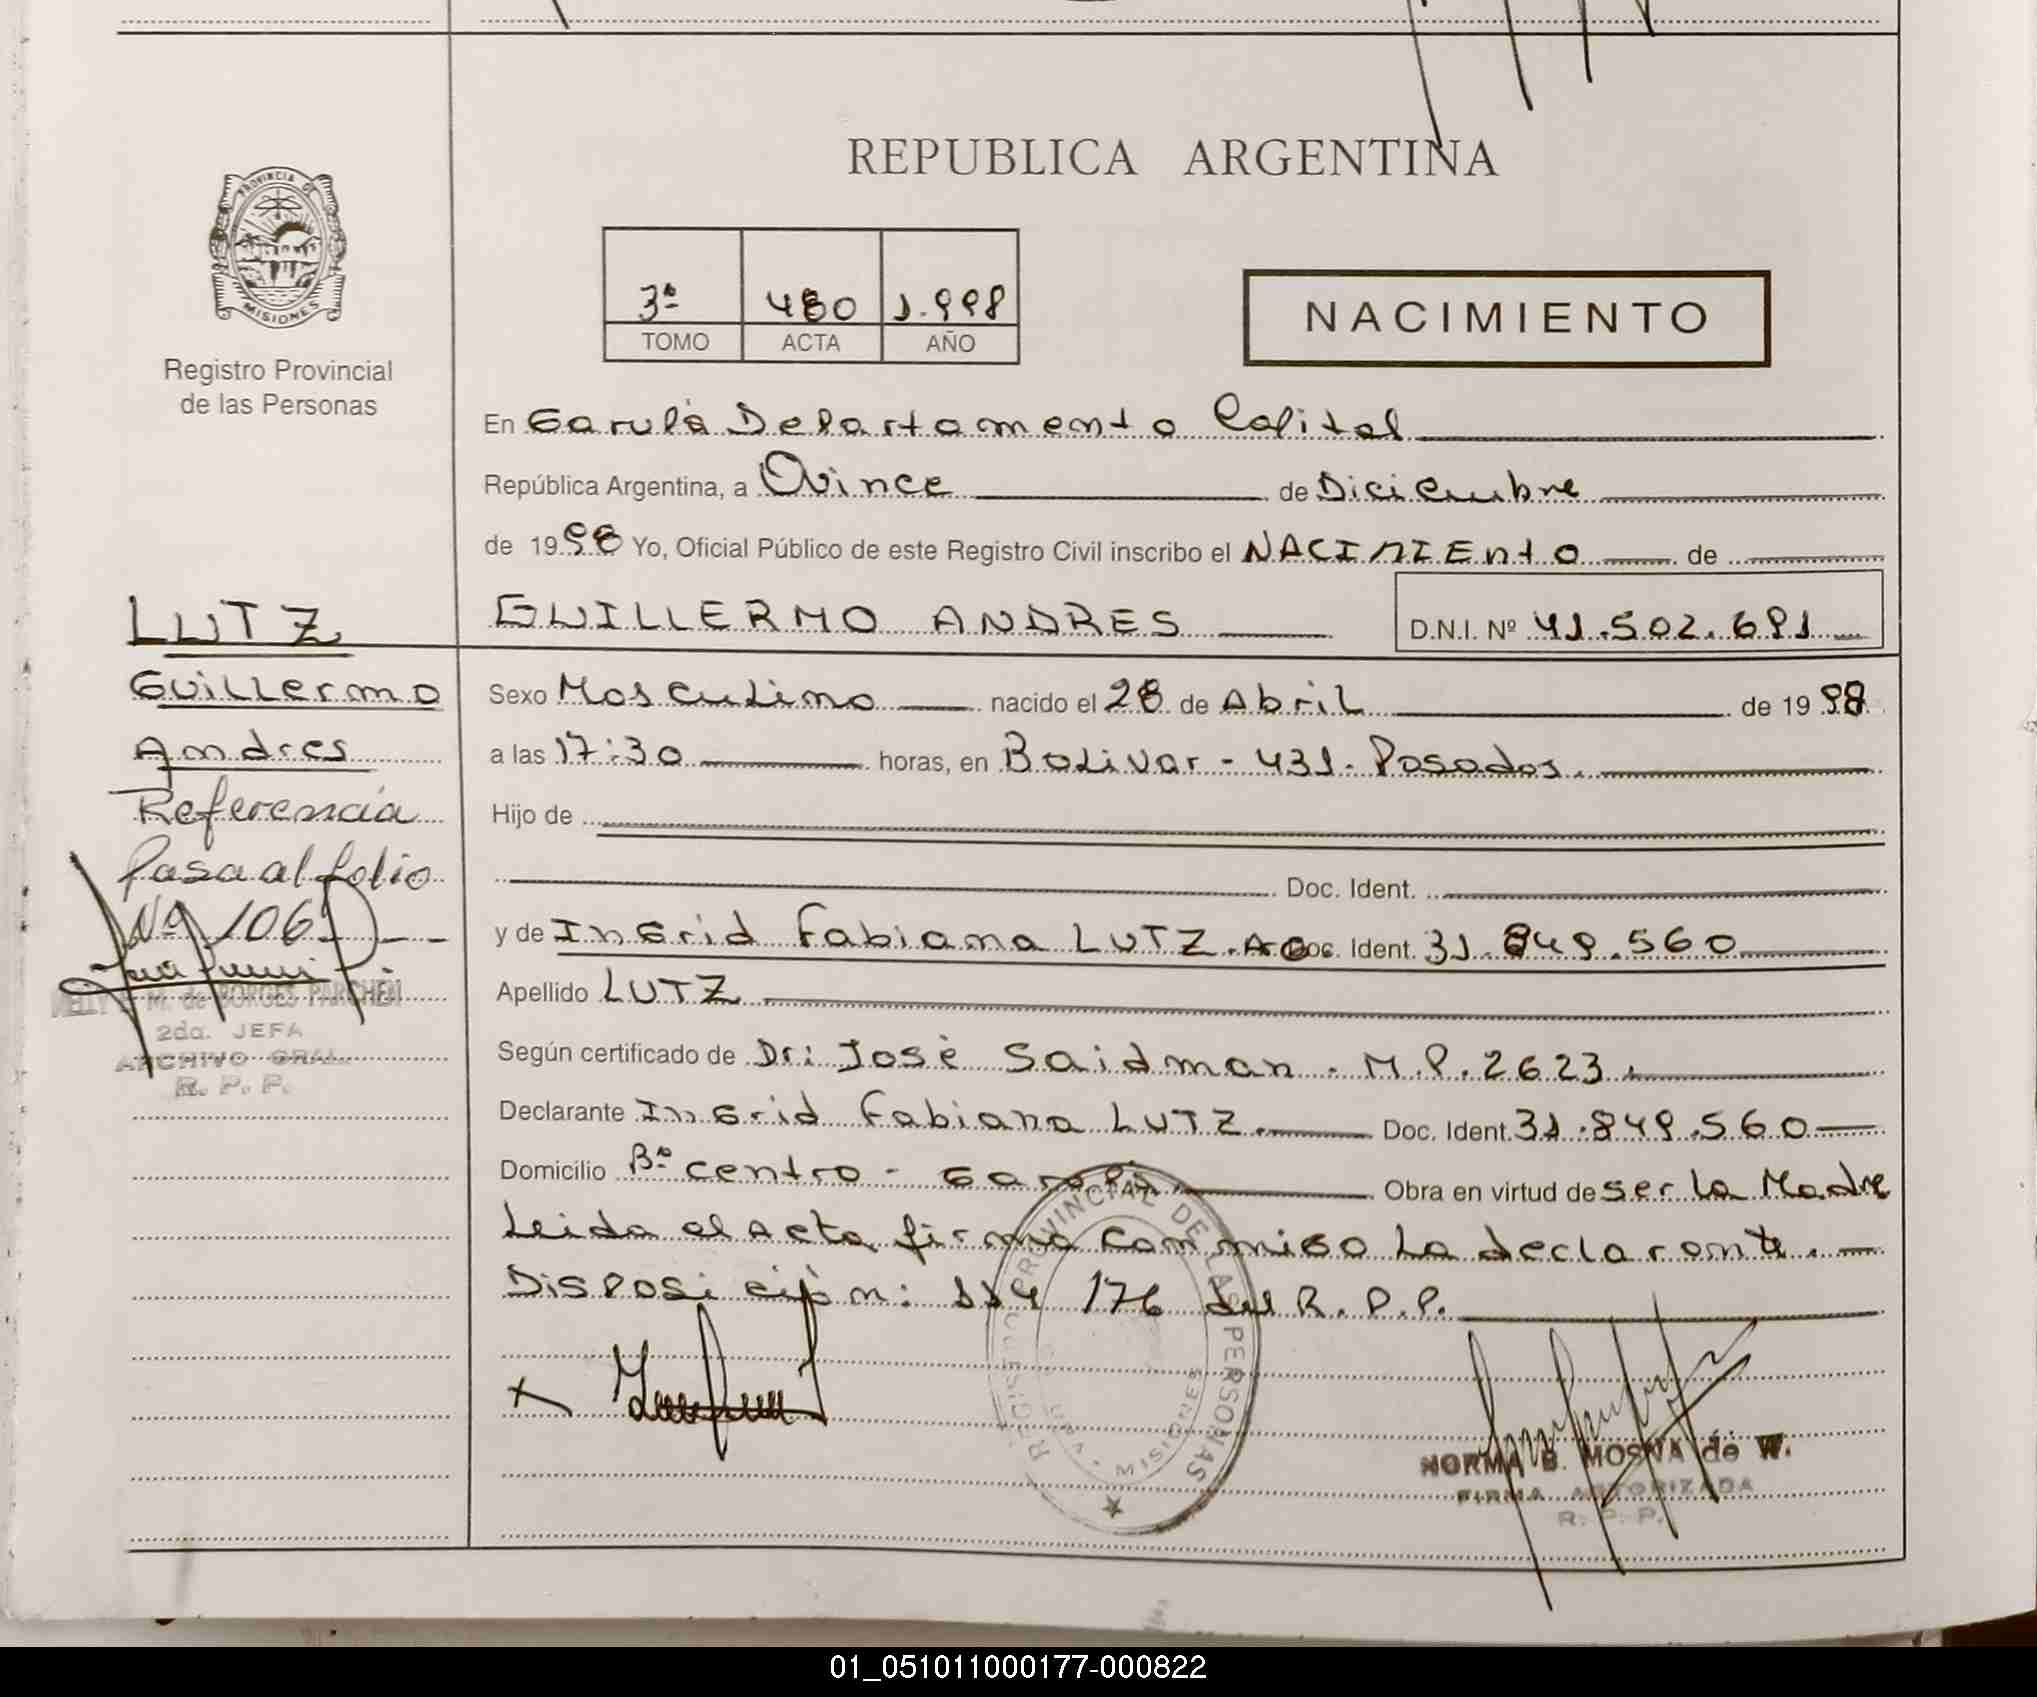 REPUBLICA ARGENTINA
PROVINCIA DE
MISIONES
Registro Provincial
de las Personas
3ª 480 1.998
TOMO ACTA AÑO
NACIMIENTO
En Garupá Departamento Capital
República Argentina, a Quince de Diciembre
de 1998 Yo, Oficial Público de este Registro Civil inscribo el NACIMIENTO de
GUILLERMO ANDRES D.N.I. Nº 41.502.691
LUTZ
Guillermo
Andres
Referencia
Pasa al folio
Nº 106
M. de BORGES PARCHEN
2da. JEFA
ARCHIVO GRAL.
R. P. P.
Sexo Masculino nacido el 28 de Abril de 1998
a las 17:30 horas, en Bolivar - 431. Posadas.
Hijo de
Doc. Ident.
y de Ingrid Fabiana LUTZ. Doc. Ident. 31.849.560
Apellido LUTZ
Según certificado de Dr: José Saidman. M.P. 2623.
Declarante Ingrid Fabiana LUTZ. Doc. Ident. 31.849.560
Domicilio Bº centro - Garupá. Obra en virtud de ser la Madre
Leida el acta firma conmigo la declarante.
Disposición: 114 176 del R.P.P.
REGISTRO PROVINCIAL DE LAS PERSONAS
MISIONES
NORMA B. MOSNA de W.
FIRMA AUTORIZADA
R. P. P.
01_051011000177-000822